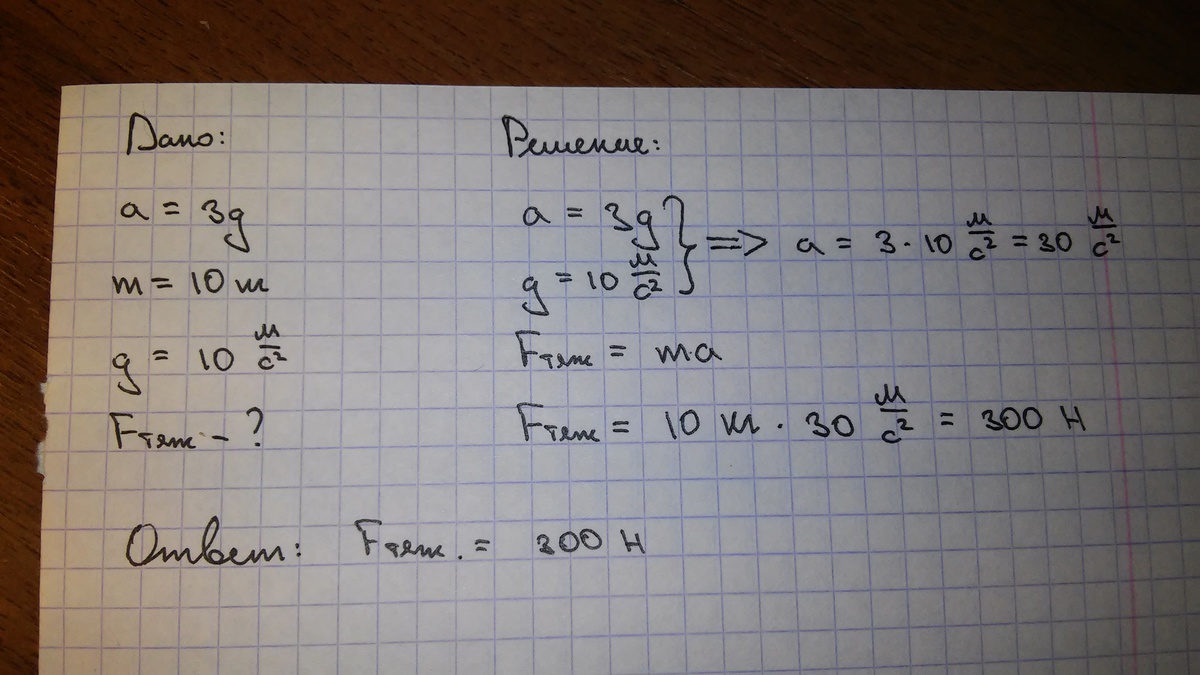 Дано:
a = 3g
m = 10 кг
g = 10 м/с²
Fтяж - ?
Решение:
a = 3g
g = 10 м/с²
} => a = 3 · 10 м/с² = 30 м/с²
Fтяж = m·a
Fтяж = 10 кг · 30 м/с² = 300 Н
Ответ: Fтяж. = 300 Н